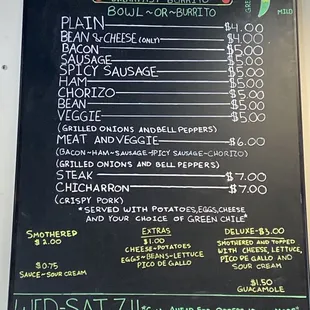 BURRITO
BOWL~OR~BURRITO
MILD
PLAIN $4.00
BEAN & CHEESE (ONLY) $4.00
BACON $5.00
SAUSAGE $5.00
SPICY SAUSAGE $5.00
HAM $5.00
CHORIZO $5.00
BEAN $5.00
VEGGIE $5.00
(GRILLED ONIONS AND BELL PEPPERS)
MEAT AND VEGGIE $6.00
(BACON~HAM~SAUSAGE~SPICY SAUSAGE~CHORIZO)
(GRILLED ONIONS AND BELL PEPPERS)
STEAK $7.00
CHICHARRON $7.00
(CRISPY PORK)
*SERVED WITH POTATOES, EGGS, CHEESE
AND YOUR CHOICE OF GREEN CHILE*
SMOTHERED
$2.00
$0.75
SAUCE~SOUR CREAM
EXTRAS
$1.00
CHEESE~POTATOES
EGGS~BEANS~LETTUCE
PICO DE GALLO
DELUXE~$3.00
SMOTHERED AND TOPPED
WITH CHEESE, LETTUCE,
PICO DE GALLO AND
SOUR CREAM
$1.50
GUACAMOLE
WED-SAT